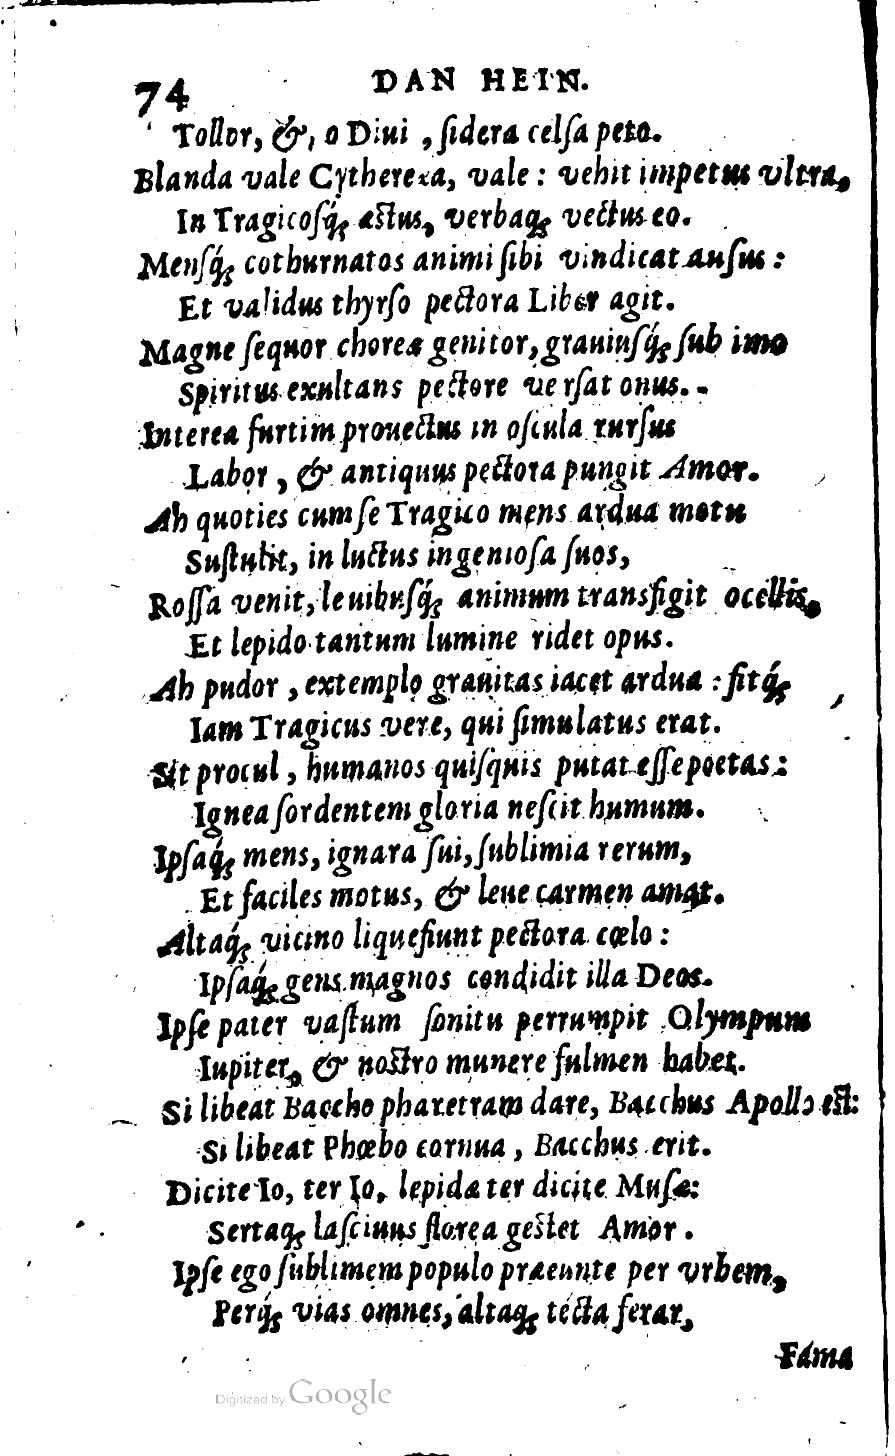 74 DAN HEIN.
Tollor, &, o Diui, ſidera celſa peto.
Blanda vale Cythereia, vale: vehit impetus vltra,
In Tragicoſq́; æſtus, verbaq; vectus eo.
Menſq́; cothurnatos animi ſibi vindicat auſus:
Et validus thyrſo pectora Liber agit.
Magne ſequor choreæ genitor, grauiuſq́; ſub imo
Spiritus exultans pectore verſat onus.
Interea furtim prouectus in oſcula rurſus
Labor, & antiquus pectora pungit Amor.
Ah quoties cum ſe Tragico mens ardua motu
Suſtulit, in luctus ingenioſa ſuos,
Roſſa venit, leuibuſq́; animum transfigit ocellis,
Et lepido tantum lumine ridet opus.
Ah pudor, extemplo grauitas iacet ardua: fitq́;
Iam Tragicus vere, qui ſimulatus erat.
Sit procul, humanos quiſquis putat eſſe poetas:
Ignea ſordentem gloria neſcit humum.
Ipſaq́; mens, ignara ſui, ſublimia rerum,
Et faciles motus, & leue carmen amat.
Altaq́; vicino liquefiunt pectora cœlo:
Ipſaq́; gens magnos condidit illa Deos.
Ipſe pater vaſtum ſonitu perrumpit Olympum
Iupiter, & noſtro munere fulmen habet.
Si libeat Baccho pharetram dare, Bacchus Apollo eſt:
Si libeat Phœbo cornua, Bacchus erit.
Dicite Io, ter Io, lepidæ ter dicite Muſæ:
Sertaq; laſciuus florea geſtet Amor.
Ipſe ego ſublimem populo præeunte per vrbem,
Perq́; vias omnes, altaq; tecta ferar,
Fama
Digitized by Google